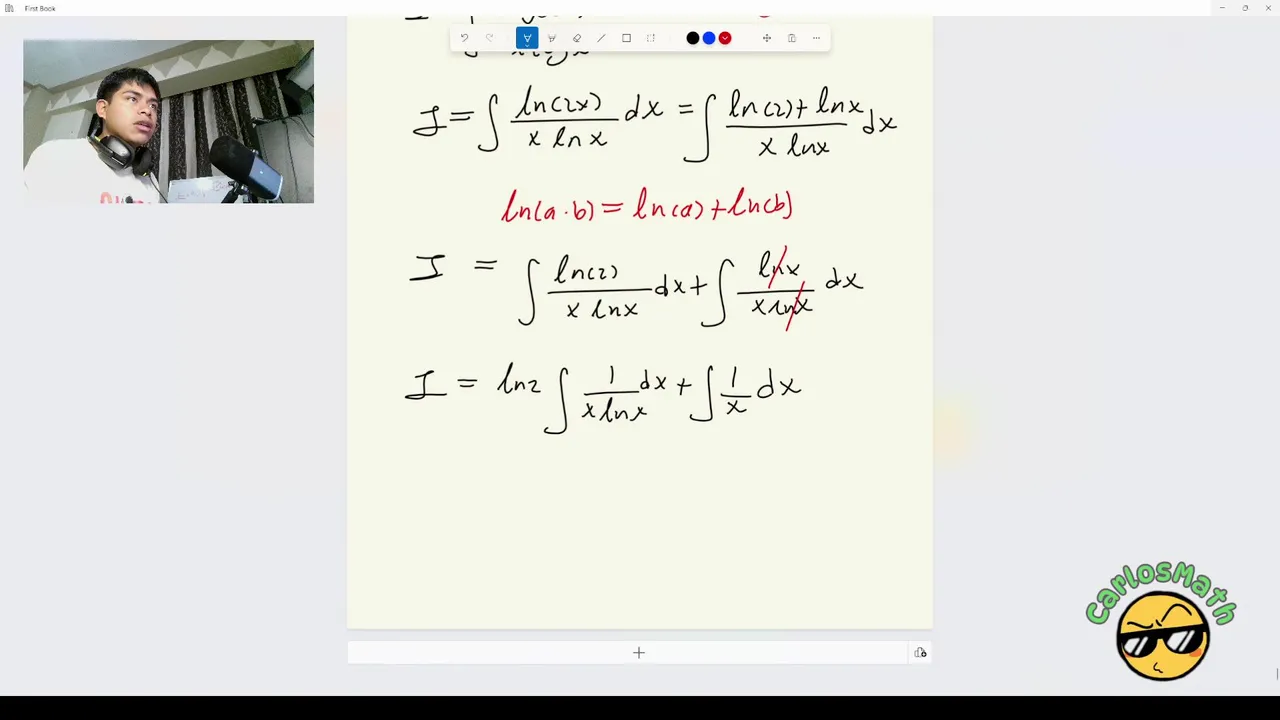 First Book
I = ∫ ln(2x) / (x ln x) dx = ∫ (ln(2) + ln x) / (x ln x) dx
ln(a · b) = ln(a) + ln(b)
I = ∫ ln(2) / (x ln x) dx + ∫ ln x / (x ln x) dx
I = ln 2 ∫ 1 / (x ln x) dx + ∫ 1/x dx
CarlosMath